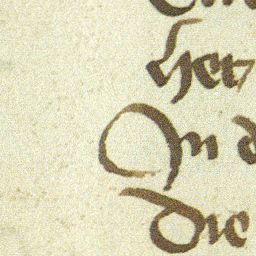 het
In d
die